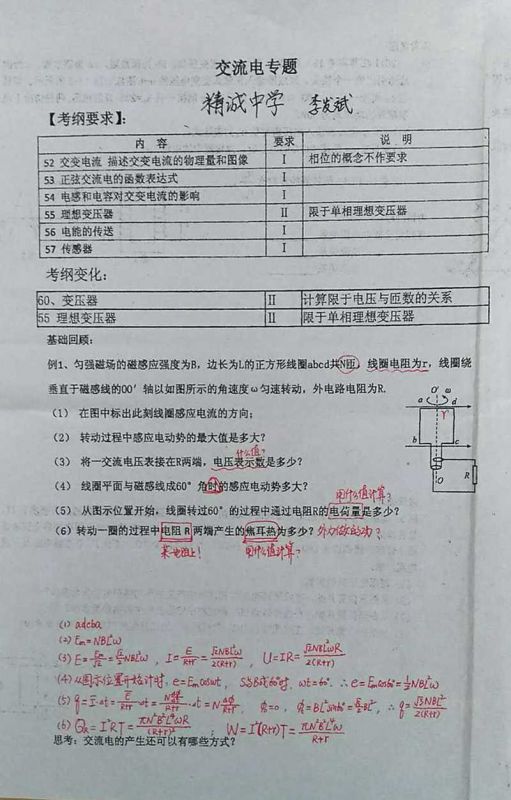 交流电专题
精诚中学 李发斌
【考纲要求】：
内 容 要求 说 明
52 交变电流 描述交变电流的物理量和图像 I 相位的概念不作要求
53 正弦交流电的函数表达式 I
54 电感和电容对交变电流的影响 I
55 理想变压器 II 限于单相理想变压器
56 电能的传送 I
57 传感器 I
考纲变化：
60、变压器 II 计算限于电压与匝数的关系
55 理想变压器 II 限于单相理想变压器
基础回顾：
例1、匀强磁场的磁感应强度为B，边长为L的正方形线圈abcd共N匝，线圈电阻为r，线圈绕
垂直于磁感线的OO′轴以如图所示的角速度ω匀速转动，外电路电阻为R.
O′ ω
a d
r
b c
O
R
(1) 在图中标出此刻线圈感应电流的方向；
(2) 转动过程中感应电动势的最大值是多大？
什么值？
(3) 将一交流电压表接在R两端，电压表示数是多少？
(4) 线圈平面与磁感线成60°角时的感应电动势多大？
用什么值计算？
(5) 从图示位置开始，线圈转过60°的过程中通过电阻R的电荷量是多少？
(6) 转动一圈的过程中电阻R两端产生的焦耳热为多少？外力做的功？
某电阻上！ 用什么值计算？
(1) adcba
(2) Em=NBL²ω
(3) E=Em/√2=√2/2NBL²ω，I=E/(R+r)=√2NBL²ω/2(R+r)，U=IR=√2NBL²ωR/2(R+r)
(4) 从图示位置开始计时，e=Emcosωt，S与B成60°时，ωt=60°，∴e=Emcos60°=½NBL²ω
(5) q=Ī·Δt=Ē/(R+r)·Δt=N(ΔΦ/Δt)/(R+r)·Δt=NΔΦ/(R+r)，Φ₁=0，Φ₂=BL²sin60°=√3/2BL²，∴q=√3NBL²/2(R+r)
(6) Q_R=I²RT=πN²B²L⁴ωR/(R+r)²；W=I²(R+r)T=πN²B²L⁴ω/(R+r)
思考：交流电的产生还可以有哪些方式？